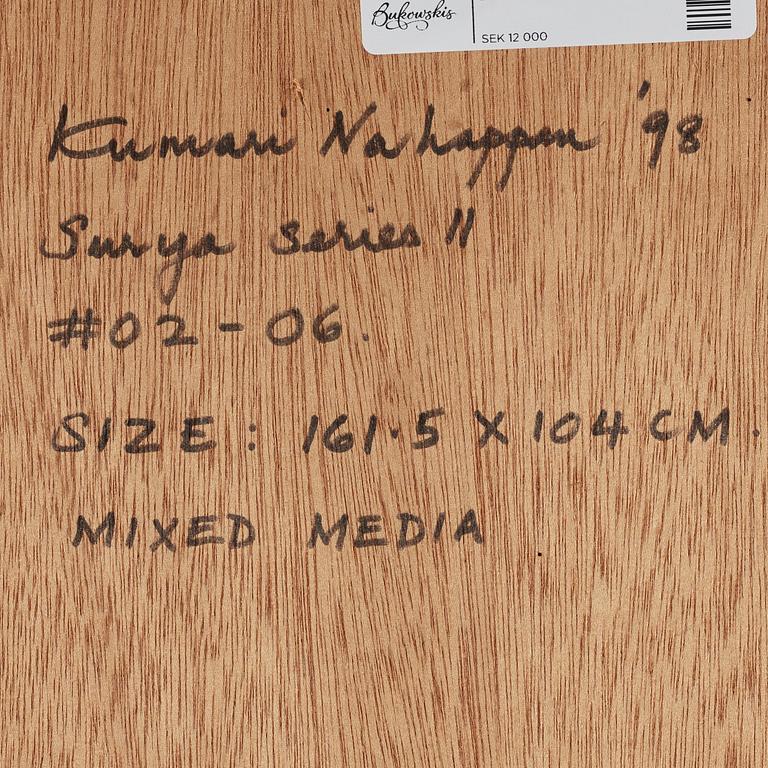 Bukowskis
SEK 12 000
Kumari Nahappan '98
Surya series II
#02-06.
SIZE: 161.5 X 104 CM.
MIXED MEDIA